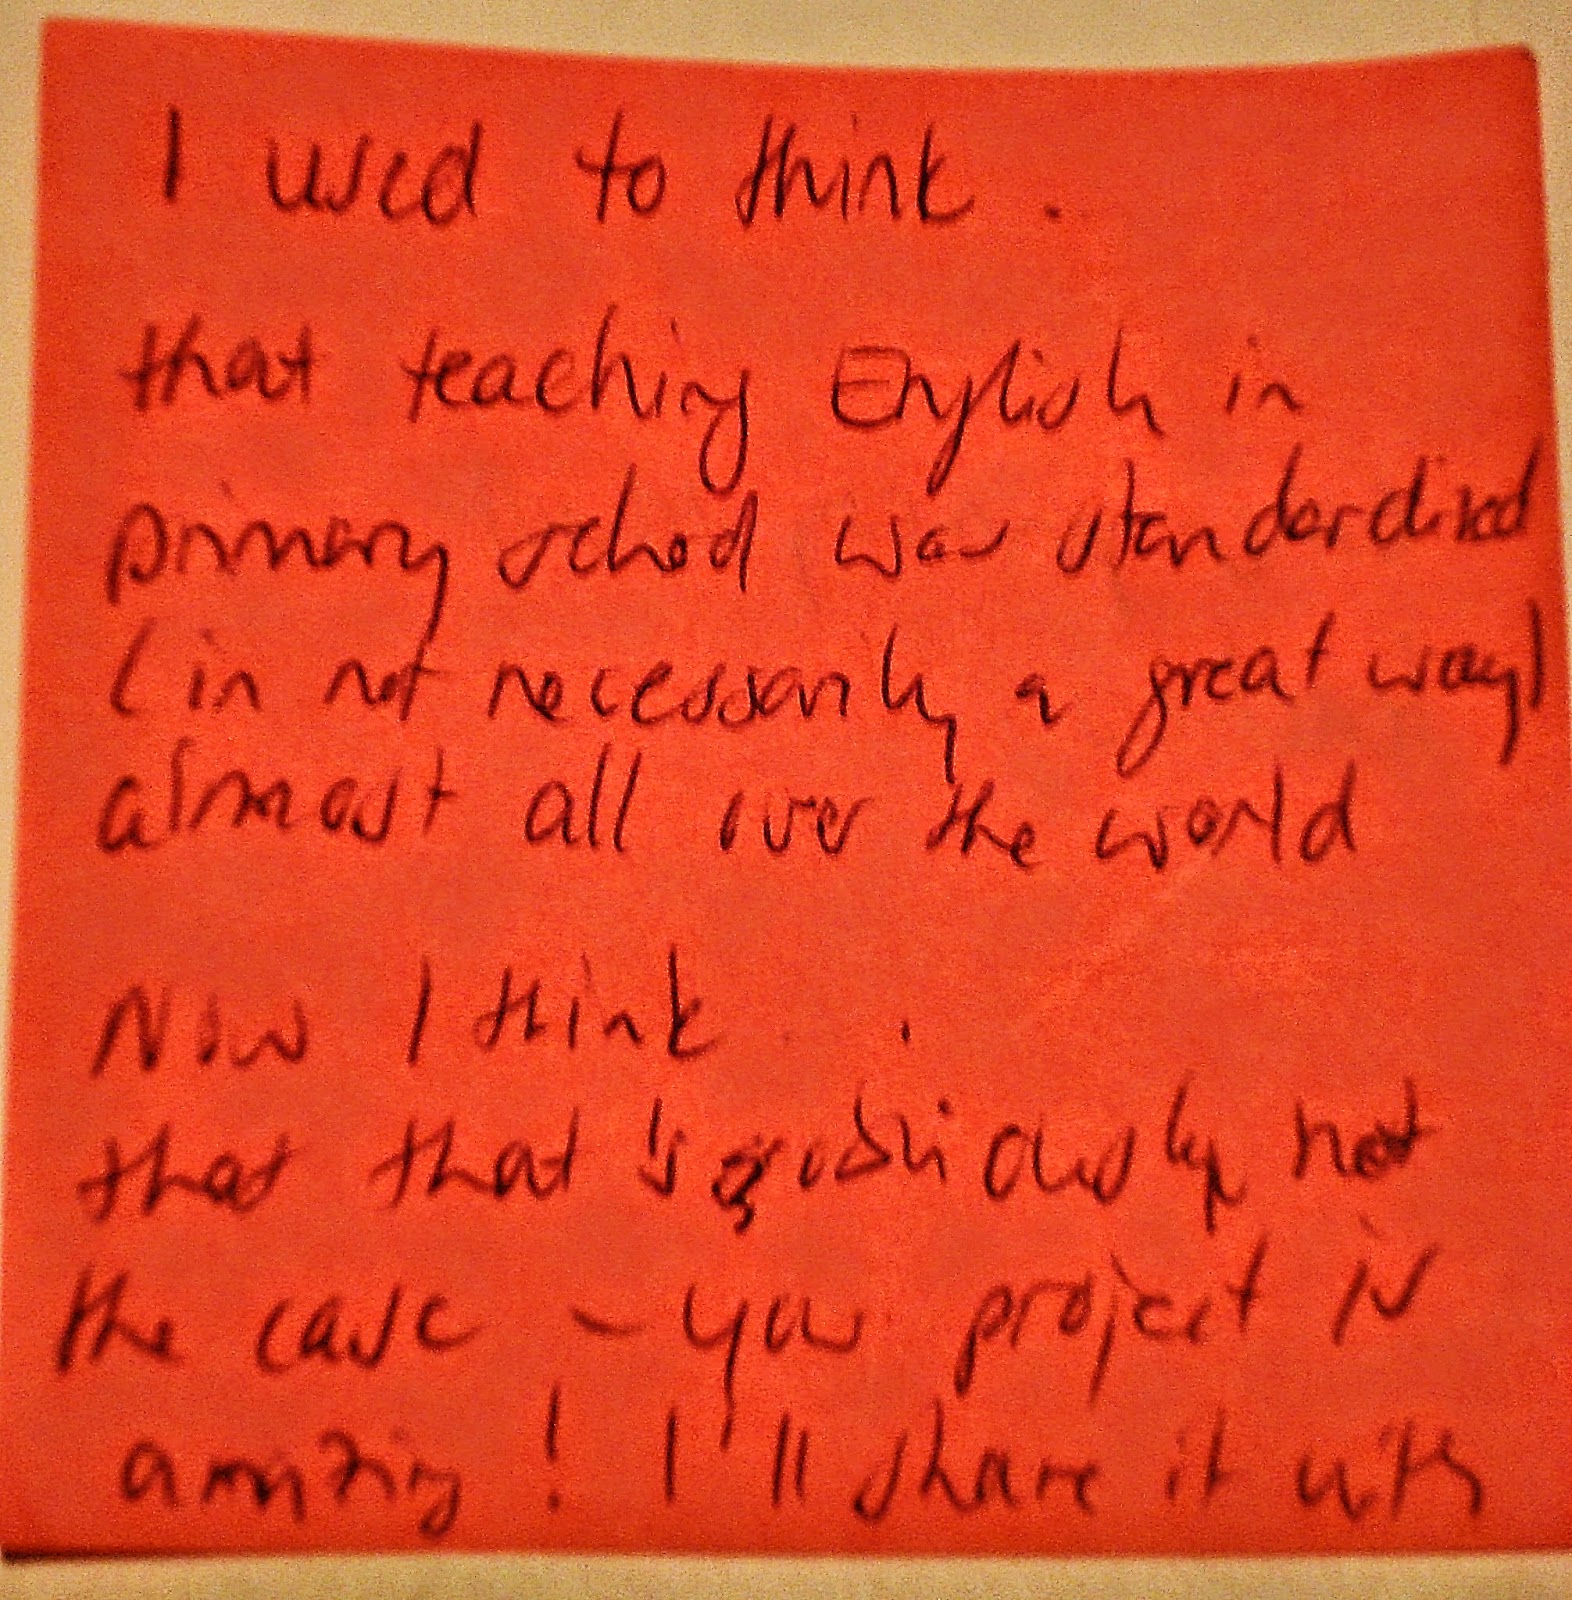 I used to think .
that teaching English in
primary school was standardised
(in not necessarily a great way)
almost all over the world
Now I think . .
that that's obviously not
the case - your project is
amazing! I'll share it with